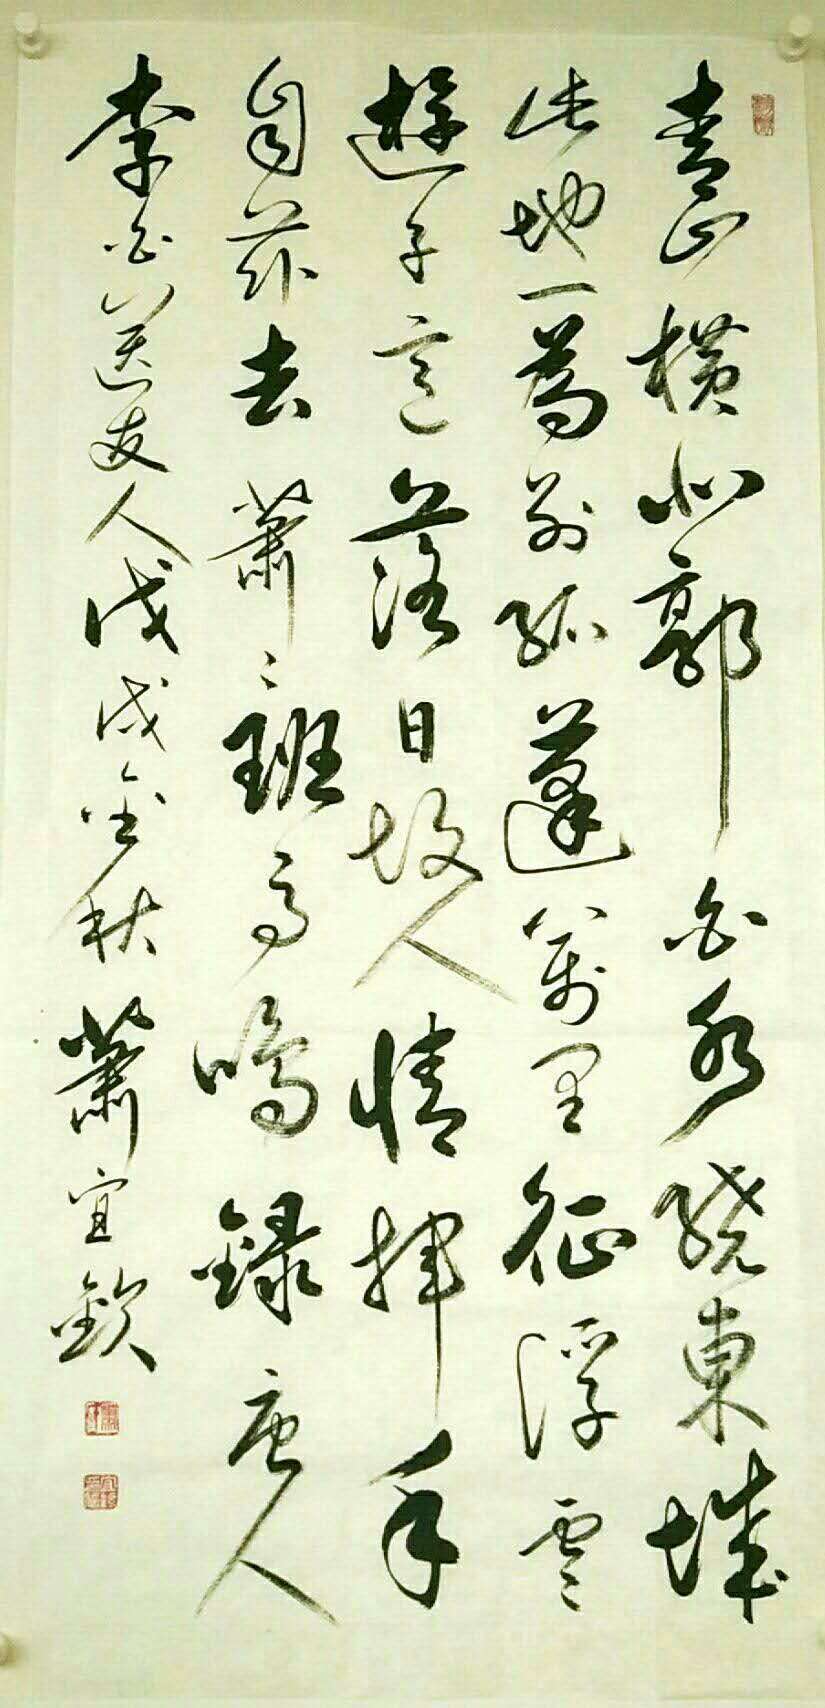 青山橫北郭白水繞東城
此地一為別孤蓬萬里征浮雲
遊子意落日故人情揮手
自茲去蕭〻班馬鳴録唐人
李白送友人戊戌金秋蕭宜欽